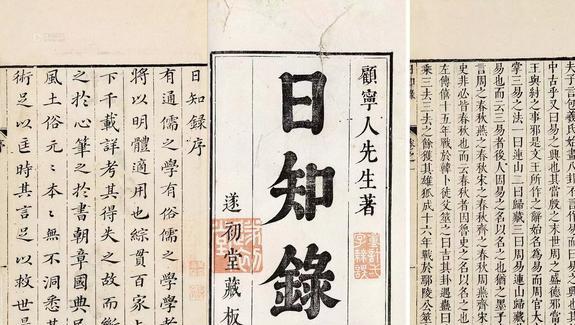 夫子言包羲氏始畫八卦不言作易而曰
中古乎又曰易之興也其當殷之末世周之盛德邪當
王與紂之事邪是文王所作之辭始名為易而周官大
掌三易之法一曰連山二曰歸藏三曰周易連山歸藏
易也而云三易者後人因易之名以名之也猶之墨子
言周之春秋燕之春秋宋之春秋齊之春秋周燕齊宋
史非必皆春秋也而云春秋者因魯史之名以名之也
左傳僖十五年戰於韓卜徒父筮之曰吉其卦遇蠱曰
乘三去三去之餘獲其雄狐成十六年戰於鄢陵公筮
顧寧人先生著
日知錄
遂初堂藏板
日知録序
有通儒之學有俗儒之學學
將以明體適用也綜貫百家上
下千載詳考其得失之故而斷
之於心筆之於書朝章國典民
風土俗元〻本〻無不洞悉其
術足以匡時其言足以救世是